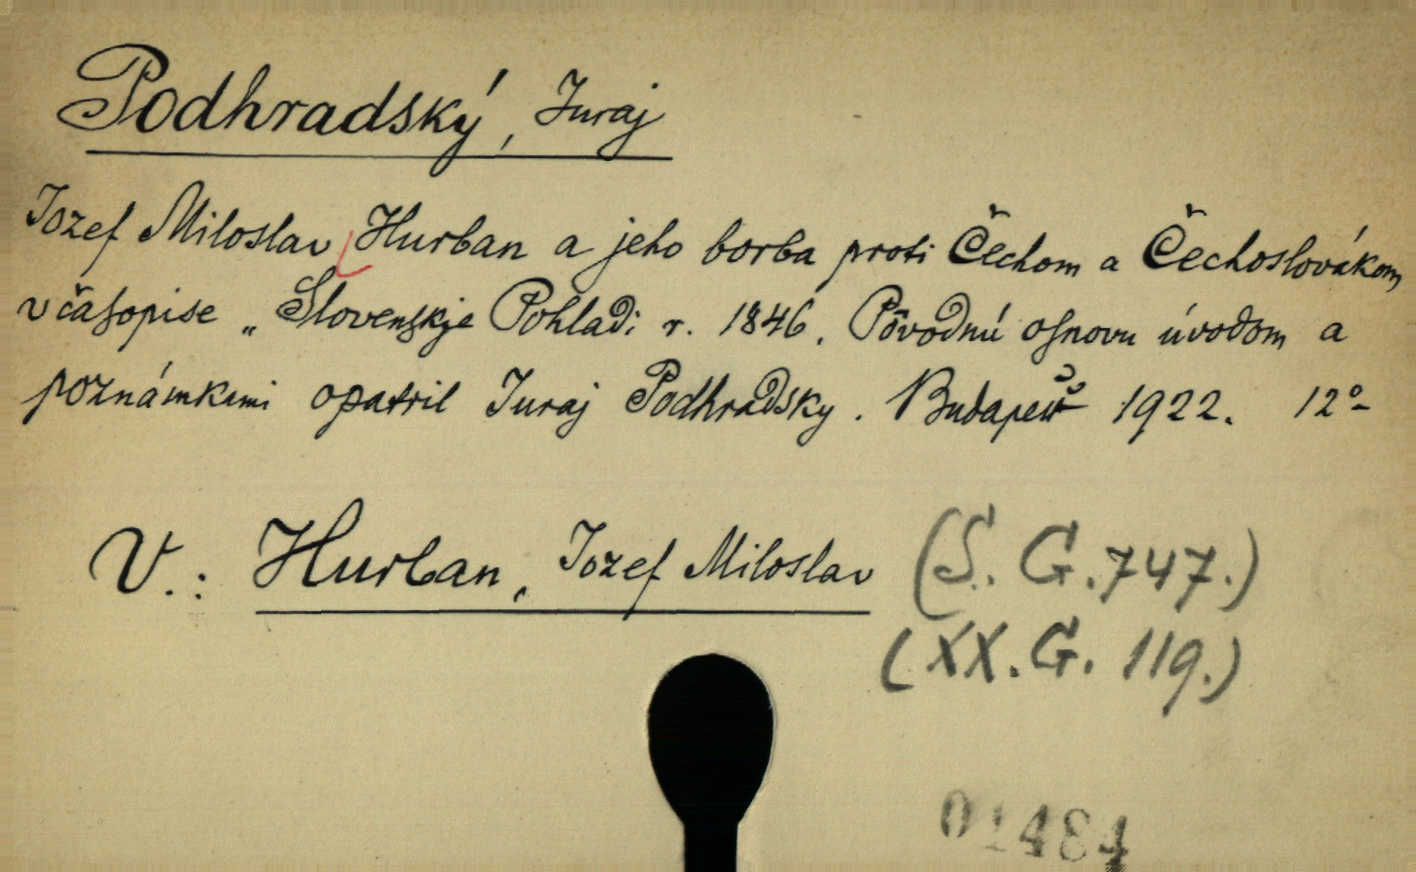 Podhradský, Juraj
Jozef Miloslav Hurban a jeho borba proti Čechom a Čechoslovákom
v časopise „Slovenskje Pohladi r. 1846. Pôvodnú osnovu úvodom a
poznámkami opatril Juraj Podhradsky. Budapešť 1922. 12°
V.: Hurban, Jozef Miloslav (S. G. 747.)
(XX. G. 119.)
01484